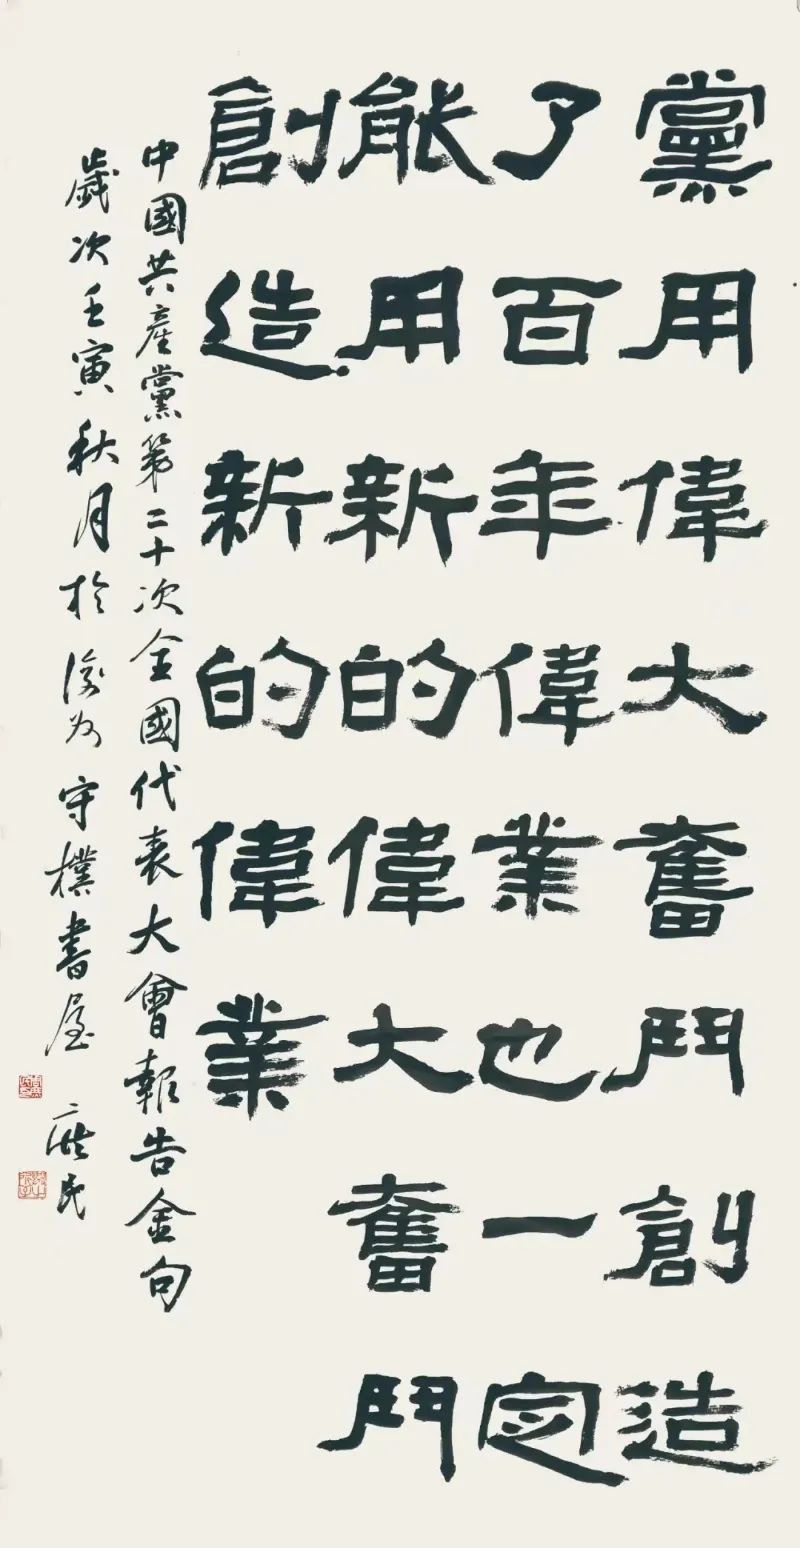 黨用偉大奮鬥創造
了百年偉業也一定
能用新的偉大奮鬥
創造新的偉業
中國共產黨第二十次全國代表大會報告金句
歲次壬寅秋月於守樸書屋 民